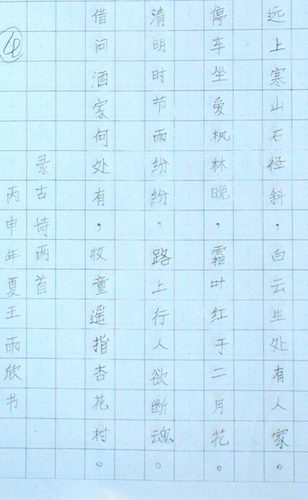 远上寒山石径斜，白云生处有人家。
停车坐爱枫林晚，霜叶红于二月花。
清明时节雨纷纷，路上行人欲断魂。
借问酒家何处有，牧童遥指杏花村。
录古诗两首
丙申年夏王雨欣书
4